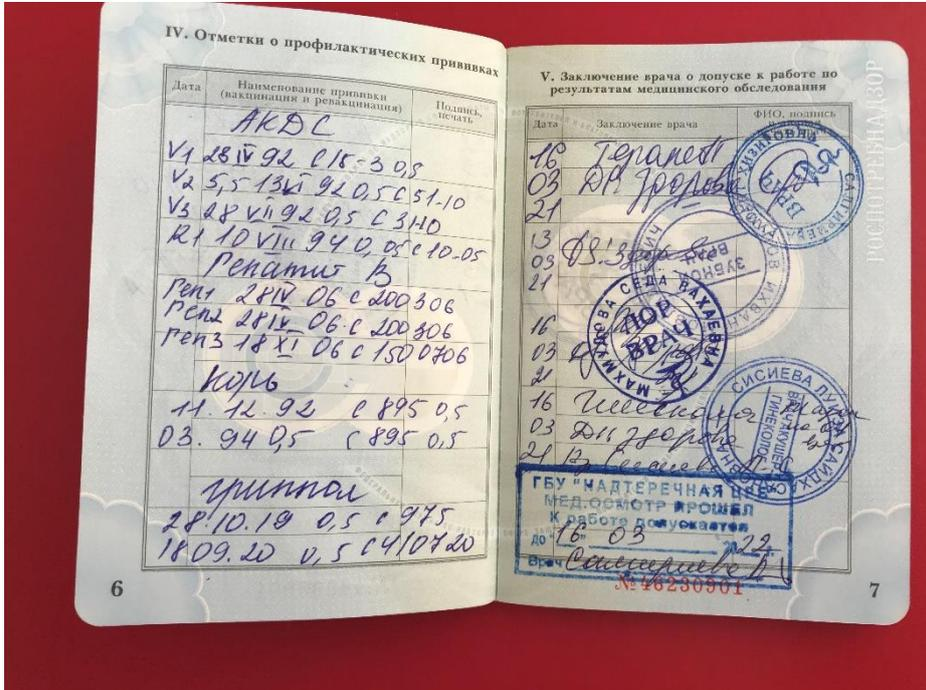 IV. Отметки о профилактических прививках
Дата
Наименование прививки
(вакцинация и ревакцинация)
Подпись,
печать
АКДС
V1 28 IV 92 с 15-3 0,5
V2 5,5 13 VI 92 0,5 с 51-10
V3 28 VII 92 0,5 с
R1 10 VIII 94 0,05 с 10-05
Гепатит В
Геп1 28 IV 06 с 200306
Геп2 28 IV 06 с 200306
Геп3 18 XI 06 с 1500706
Корь
11.12.92 с 895 0,5
03.94 0,5 с 895 0,5
гриппол
28.10.19 0,5 с 975
18.09.20 0,5 с 41/0720
6
V. Заключение врача о допуске к работе по
результатам медицинского обследования
Дата
Заключение врача
ФИО, подпись
16 Терапевт
03 Дн здорова
21
ВРАЧ
13
03
21
ЗУБНОЙ
ВРАЧ
16
03
21
МАХМУДОВА СЕДА ВАХАЕВНА
ЛОР
ВРАЧ
16 Гинеколог
03 Дн здорова
21
СИСИЕВА ЛУИЗА
ВРАЧ АКУШЕР
ГИНЕКОЛОГ
ГБУ "НАДТЕРЕЧНАЯ ЦРБ"
МЕД.ОСМОТР ПРОШЕЛ
К работе допускается
до "16" 03 22
Врач
№ 46230901
7
РОСПОТРЕБНАДЗОР